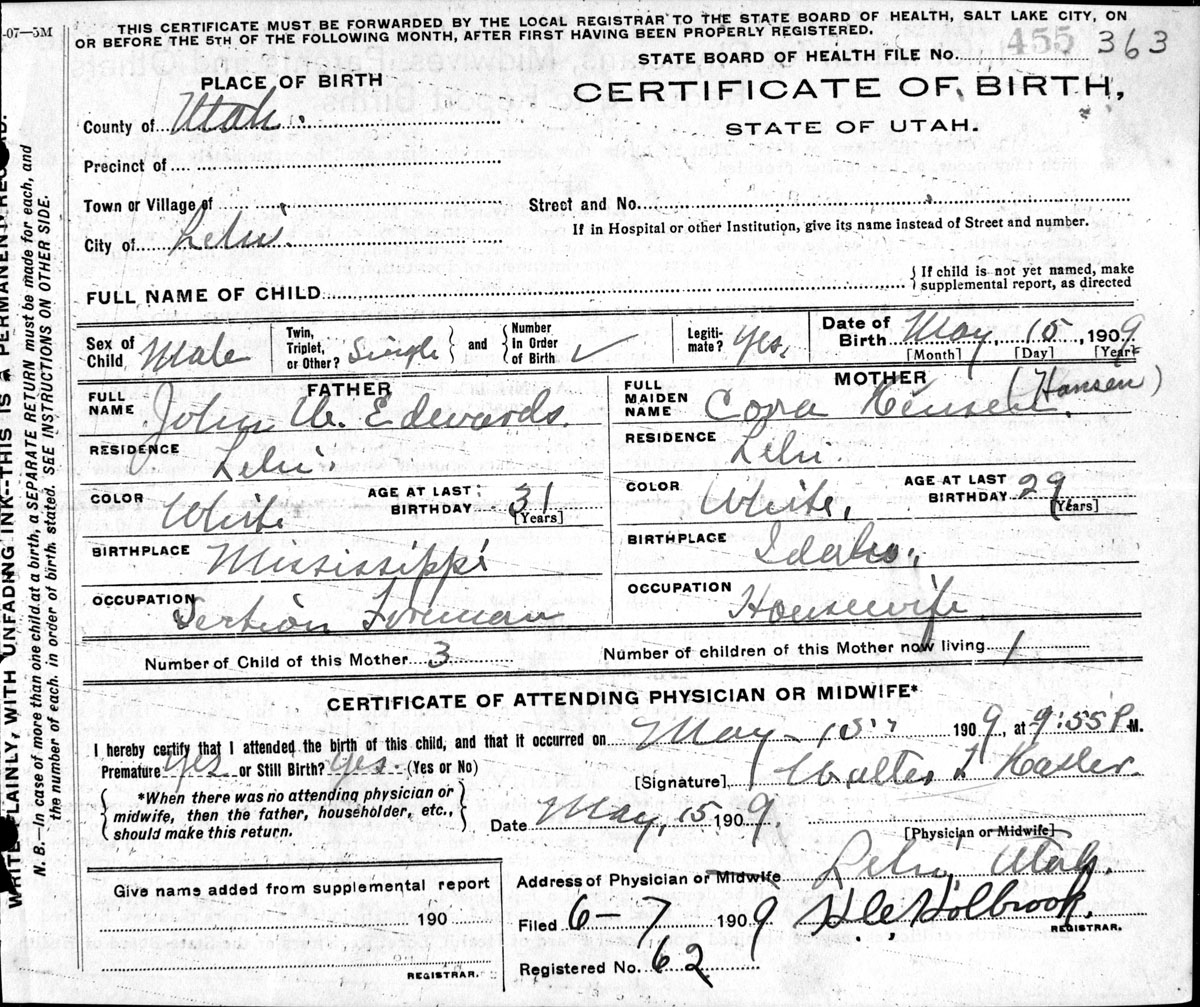 -07—5M
THIS CERTIFICATE MUST BE FORWARDED BY THE LOCAL REGISTRAR TO THE STATE BOARD OF HEALTH, SALT LAKE CITY, ON
OR BEFORE THE 5TH OF THE FOLLOWING MONTH, AFTER FIRST HAVING BEEN PROPERLY REGISTERED.
STATE BOARD OF HEALTH FILE No. 455 363
PLACE OF BIRTH
CERTIFICATE OF BIRTH,
STATE OF UTAH.
County of Utah.
Precinct of
Town or Village of
Street and No.
City of Lehi.
If in Hospital or other Institution, give its name instead of Street and number.
FULL NAME OF CHILD
{If child is not yet named, make
supplemental report, as directed
Sex of Child Male
Twin, Triplet, or Other? Single } and { Number In Order of Birth ✓
Legiti-mate? Yes.
Date of Birth May, 15, 1909
[Month] [Day] [Year]
FATHER
MOTHER
FULL NAME John W. Edwards.
FULL MAIDEN NAME Cora Hensen. (Hansen)
RESIDENCE Lehi.
RESIDENCE Lehi
COLOR White
AGE AT LAST BIRTHDAY 31 [Years]
COLOR White,
AGE AT LAST BIRTHDAY 29 [Years]
BIRTHPLACE Mississippi
BIRTHPLACE Idaho,
OCCUPATION Section Forman
OCCUPATION Housewife
Number of Child of this Mother 3
Number of children of this Mother now living 1
CERTIFICATE OF ATTENDING PHYSICIAN OR MIDWIFE*
I hereby certify that I attended the birth of this child, and that it occurred on May 15" 1909, at 9:55 P. M.
Premature yes or Still Birth? yes. (Yes or No)
[Signature] Walter T Hasler.
{ *When there was no attending physician or
midwife, then the father, householder, etc.,
should make this return. }
Date May, 15, 1909.
[Physician or Midwife]
Address of Physician or Midwife Lehi, Utah.
Give name added from supplemental report
190
REGISTRAR.
Filed 6-7 1909 H. C. Holbrook.
REGISTRAR.
Registered No. 62
WRITE PLAINLY, WITH UNFADING INK--THIS IS A PERMANENT RECORD.
N. B.—In case of more than one child at a birth, a SEPARATE RETURN must be made for each, and
the number of each. in order of birth. stated. SEE INSTRUCTIONS ON OTHER SIDE.